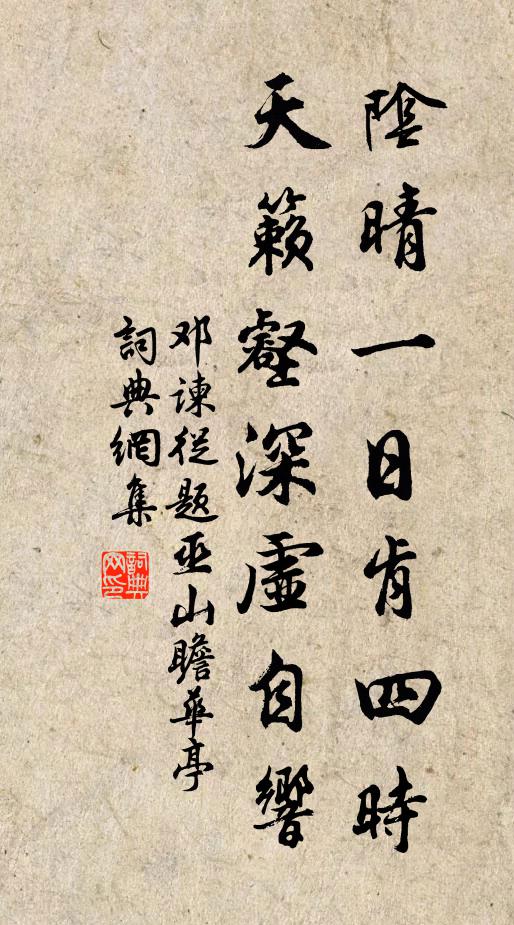 陰晴一日肯四時
天籟壑深虛自響
邓諫從題巫山瞻華亭
詞典網集
詞典网印